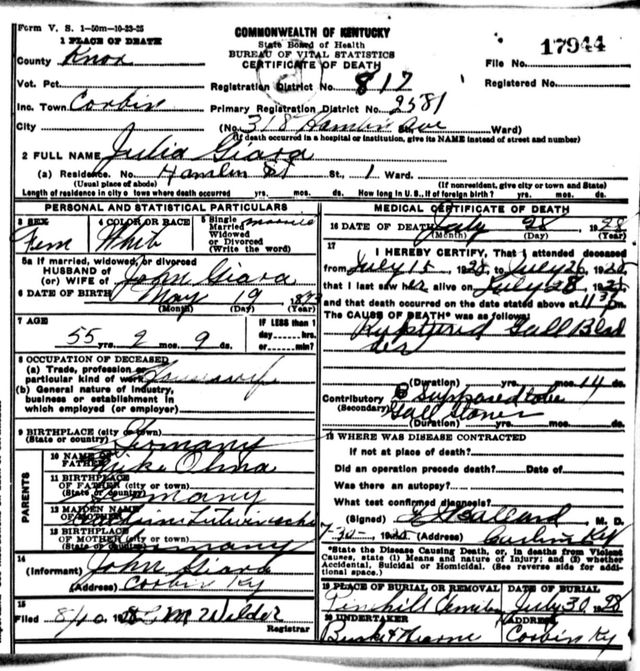 Form V. S. 1-50m-10-23-25
COMMONWEALTH OF KENTUCKY
State Board of Health
BUREAU OF VITAL STATISTICS
CERTIFICATE OF DEATH
1 PLACE OF DEATH
County Knox
File No. 17944
Vot. Pct.
Registration District No. 817
Registered No.
Inc. Town Corbin
Primary Registration District No. 2581
City (No. 318 Hamlin Ave Ward)
(If death occurred in a hospital or institution, give its NAME instead of street and number)
2 FULL NAME Julia Giara
(a) Residence. No. Hamlin St St., 1 Ward.
(Usual place of abode) (If nonresident, give city or town and State)
Length of residence in city or town where death occurred yrs. mos. ds. How long in U. S., if of foreign birth? yrs. mos. ds.
PERSONAL AND STATISTICAL PARTICULARS
3 SEX Fem
4 COLOR OR RACE White
5 Single Married Widowed or Divorced (Write the word) married
5a If married, widowed, or divorced
HUSBAND of
(or) WIFE of John Giara
6 DATE OF BIRTH May 19 1873
(Month) (Day) (Year)
7 AGE
55 yrs. 2 mos. 9 ds.
IF LESS than 1 day hrs. or min.
8 OCCUPATION OF DECEASED
(a) Trade, profession, or particular kind of work Housewife
(b) General nature of industry, business or establishment in which employed (or employer)
9 BIRTHPLACE (city or town)
(State or country) Germany
PARENTS
10 NAME OF FATHER Mike
11 BIRTHPLACE OF FATHER (city or town)
(State or country) Germany
12 MAIDEN NAME OF MOTHER
13 BIRTHPLACE OF MOTHER (city or town)
(State or country) Germany
14
(Informant) John Giara
(Address) Corbin Ky
15
Filed 8/10 1928 M Wilder
Registrar
MEDICAL CERTIFICATE OF DEATH
16 DATE OF DEATH July 28 1928
(Month) (Day) (Year)
17
I HEREBY CERTIFY, That I attended deceased
from July 15 1928, to July 28, 1928,
that I last saw her alive on July 28 1928,
and that death occurred on the date stated above at 11 m.
The CAUSE OF DEATH* was as follows:
Ruptured Gall Blad
der
(Duration) yrs. mos. 14 ds.
Contributory Supposed to be
(Secondary) Gall Stones
(Duration) yrs. mos. ds.
18 WHERE WAS DISEASE CONTRACTED
If not at place of death?
Did an operation precede death? Date of
Was there an autopsy?
What test confirmed diagnosis?
(Signed) M. D.
7-30 1928 (Address) Corbin Ky
*State the Disease Causing Death, or, in deaths from Violent
Causes, state (1) Means and nature of Injury; and (2) whether
Accidental, Suicidal or Homicidal. (See reverse side for addi-
tional space.)
19 PLACE OF BURIAL OR REMOVAL DATE OF BURIAL
Pinehill Cemetery July 30 1928
20 UNDERTAKER Address
Corbin Ky